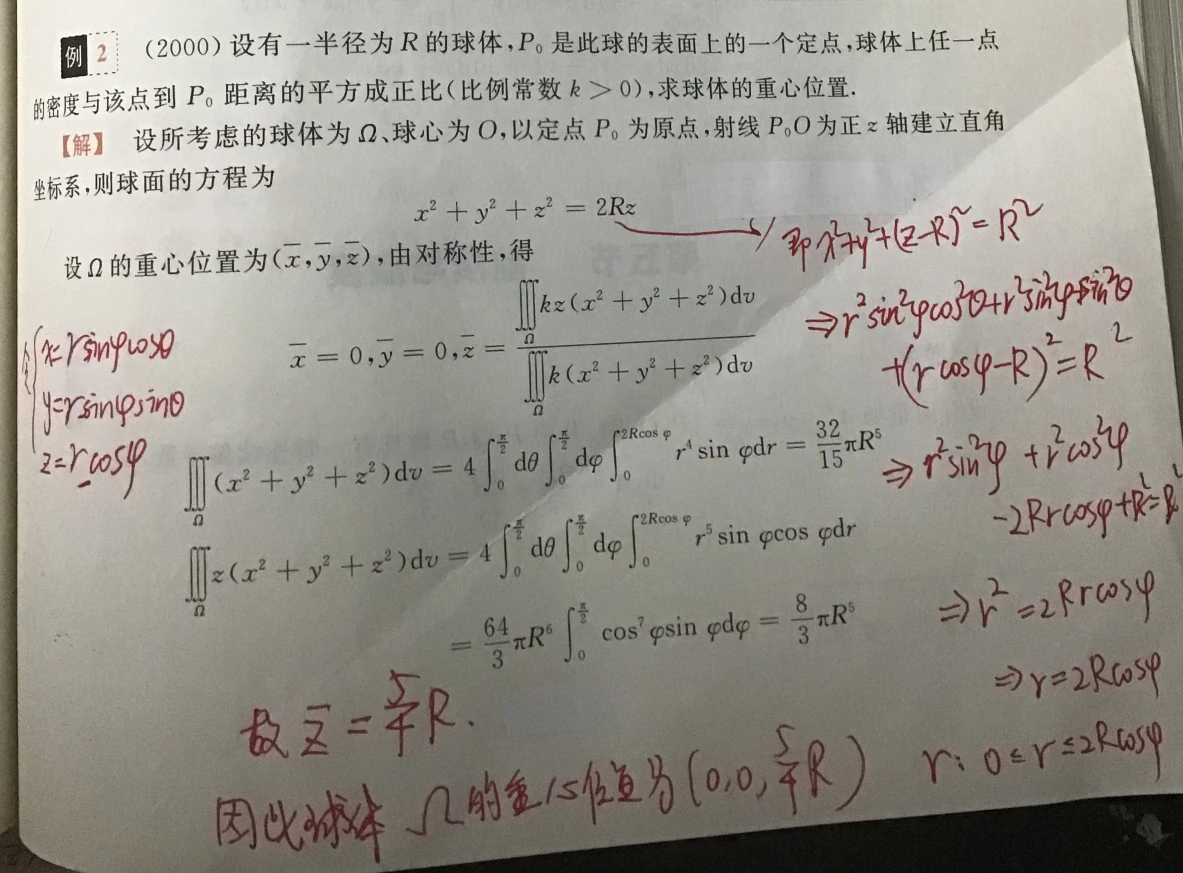 例2 (2000) 设有一半径为R的球体,P₀是此球的表面上的一个定点,球体上任一点
的密度与该点到P₀距离的平方成正比(比例常数k>0),求球体的重心位置.
【解】 设所考虑的球体为Ω、球心为O,以定点P₀为原点,射线P₀O为正z轴建立直角
坐标系,则球面的方程为
x² + y² + z² = 2Rz
即x²+y²+(z-R)²=R²
设Ω的重心位置为(x̄,ȳ,z̄),由对称性,得
x̄ = 0,ȳ = 0,z̄ = ∭_Ω kz(x² + y² + z²)dv / ∭_Ω k(x² + y² + z²)dv
⇒r²sin²φcos²θ+r²sin²φsin²θ
+(rcosφ-R)²=R²
x=rsinφcosθ
y=rsinφsinθ
z=rcosφ
∭_Ω (x² + y² + z²)dv = 4∫₀^{π/2} dθ ∫₀^{π/2} dφ ∫₀^{2Rcos φ} r⁴ sin φdr = 32/15 πR⁵
⇒r²sin²φ+r²cos²φ
-2Rrcosφ+R²=R²
∭_Ω z(x² + y² + z²)dv = 4∫₀^{π/2} dθ ∫₀^{π/2} dφ ∫₀^{2Rcos φ} r⁵ sin φcos φdr
= 64/3 πR⁶ ∫₀^{π/2} cos⁷ φsin φdφ = 8/3 πR⁶
⇒r²=2Rrcosφ
⇒r=2Rcosφ
r: 0≤r≤2Rcosφ
故 z̄ = 5/4 R.
因此球体Ω的重心位置为(0,0,5/4 R)